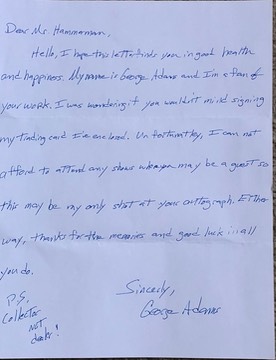 Dear Mr. Hammerman,
Hello, I hope this letter finds you in good health
and happiness. My name is George Adams and I'm a fan of
your work. I was wondering if you wouldn't mind signing
my trading card I've enclosed. Unfortunately, I can not
afford to attend any shows where you may be a guest so
this may be my only shot at your autograph. Either
way, thanks for the memories and good luck in all
you do.
Sincerly,
George Adams
P.S.
Collector
NOT
dealer!